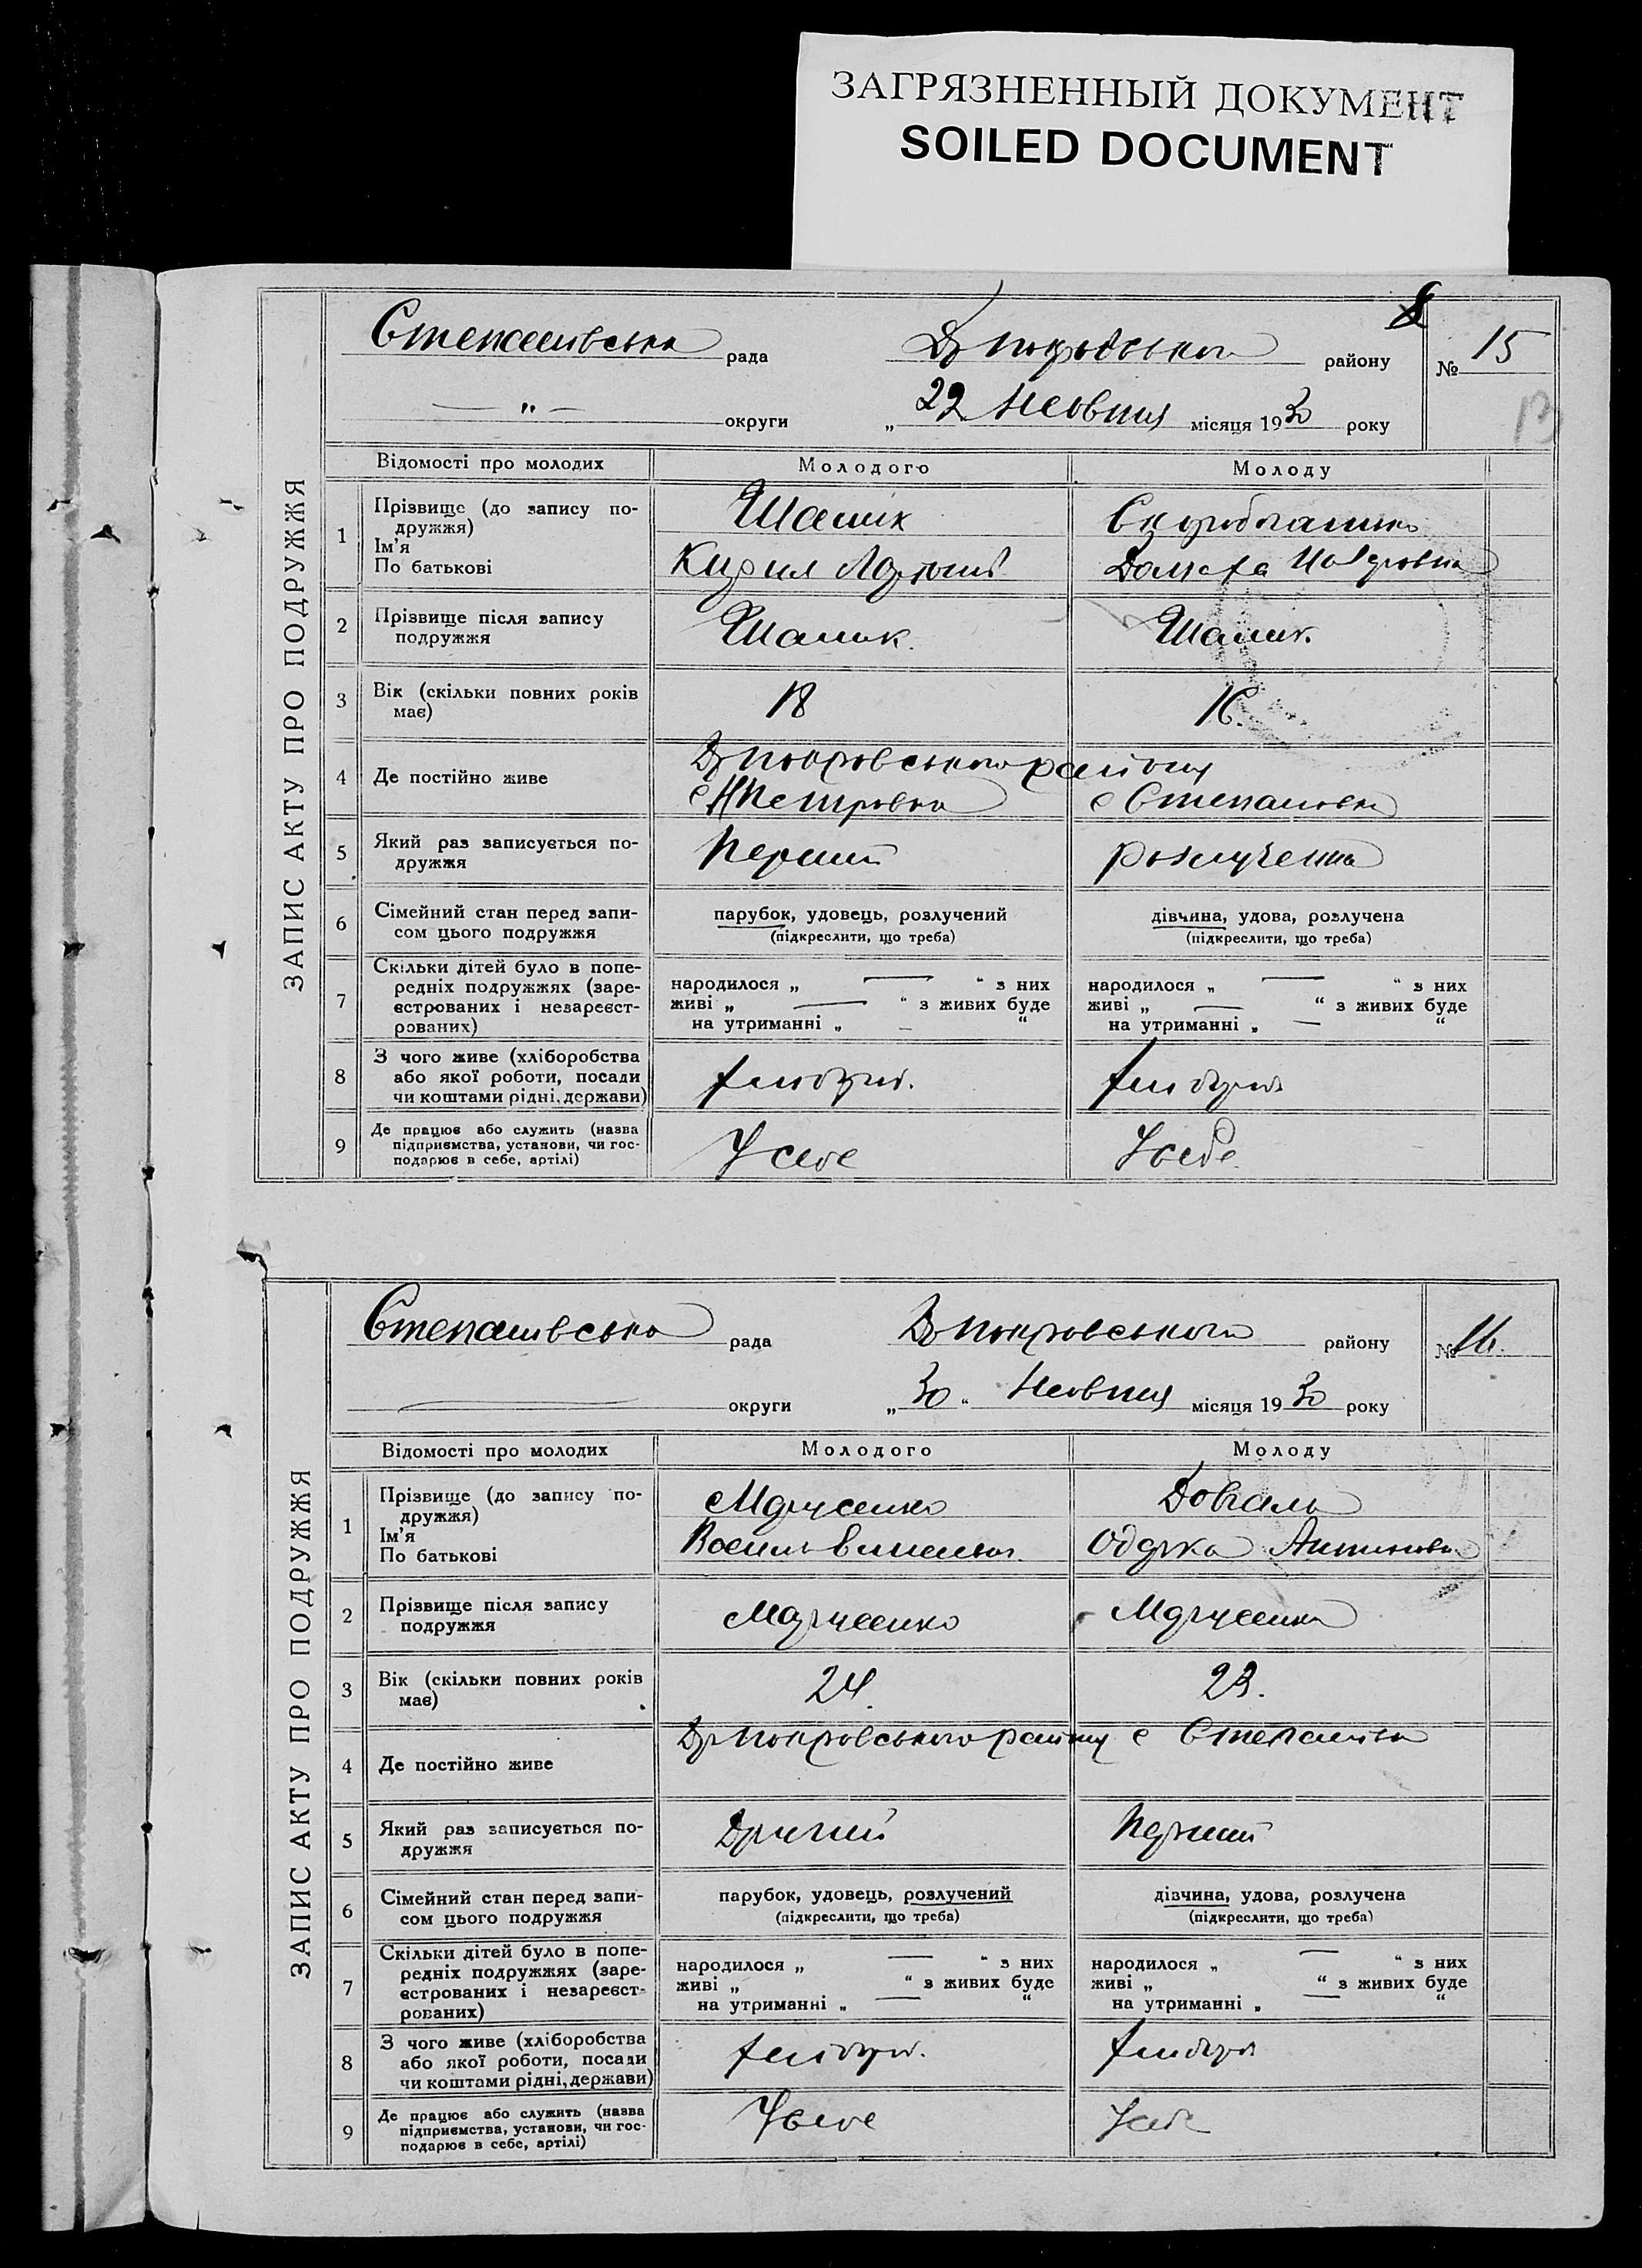 ЗАГРЯЗНЕННЫЙ ДОКУМЕНТ
SOILED DOCUMENT
ЗАПИС АКТУ ПРО ПОДРУЖЖЯ
Степанівська рада району
№ 15
" округи „ 22 Жовтня місяця 1930 року
Відомості про молодих Молодого Молоду
1 Прізвище (до запису по-
дружжя)
Ім'я
По батькові
Шамік
Кирил
2 Прізвище після запису
подружжя
Шамик. Шамик.
3 Вік (скільки повних років
має)
18 16.
4 Де постійно живе
Др Покровського району
с Степановка
5 Який раз записується по-
дружжя
Перший розлученна
6 Сімейний стан перед запи-
сом цього подружжя
парубок, удовець, розлучений
(підкреслити, що треба)
дівчина, удова, розлучена
(підкреслити, що треба)
7 Скільки дітей було в попе-
редніх подружжях (заре-
єстрованих і незареєст-
рованих)
народилося „ — “ з них
живі „ — “ з живих буде
на утриманні „ — “
народилося „ — “ з них
живі „ — “ з живих буде
на утриманні „ — “
8 З чого живе (хліборобства
або якої роботи, посади
чи коштами рідні, держави)
9 Де працює або служить (назва
підприємства, установи, чи гос-
подарює в себе, артілі)
У себе У себе
ЗАПИС АКТУ ПРО ПОДРУЖЖЯ
Степанівська рада Др Покровського району
№ 16.
округи „ 30 “ Жовтня місяця 1930 року
Відомості про молодих Молодого Молоду
1 Прізвище (до запису по-
дружжя)
Ім'я
По батькові
Довгаль
Василь
2 Прізвище після запису
подружжя
3 Вік (скільки повних років
має)
24. 23.
4 Де постійно живе
Др Покровського району с Степанівка
5 Який раз записується по-
дружжя
Другий Перший
6 Сімейний стан перед запи-
сом цього подружжя
парубок, удовець, розлучений
(підкреслити, що треба)
дівчина, удова, розлучена
(підкреслити, що треба)
7 Скільки дітей було в попе-
редніх подружжях (заре-
єстрованих і незареєст-
рованих)
народилося „ — “ з них
живі „ “ з живих буде
на утриманні „ — “
народилося „ — “ з них
живі „ “ з живих буде
на утриманні „ — “
8 З чого живе (хліборобства
або якої роботи, посади
чи коштами рідні, держави)
9 Де працює або служить (назва
підприємства, установи, чи гос-
подарює в себе, артілі)
У себе У себе